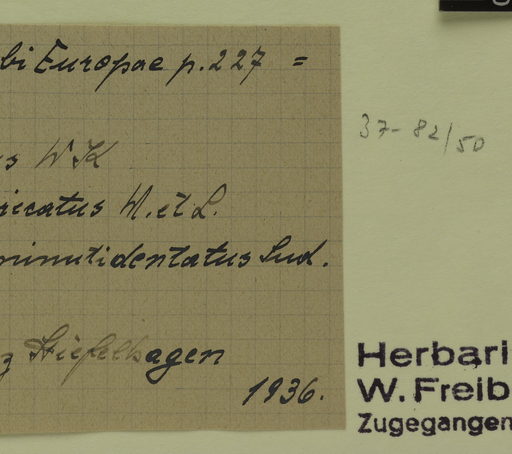 bi Europae p. 227 =
s W K
ricatus M. et L.
minutidentatus Sud.
z Stiefelhagen
1936.
37-82/50
Herbari
W. Freib
Zugegangen